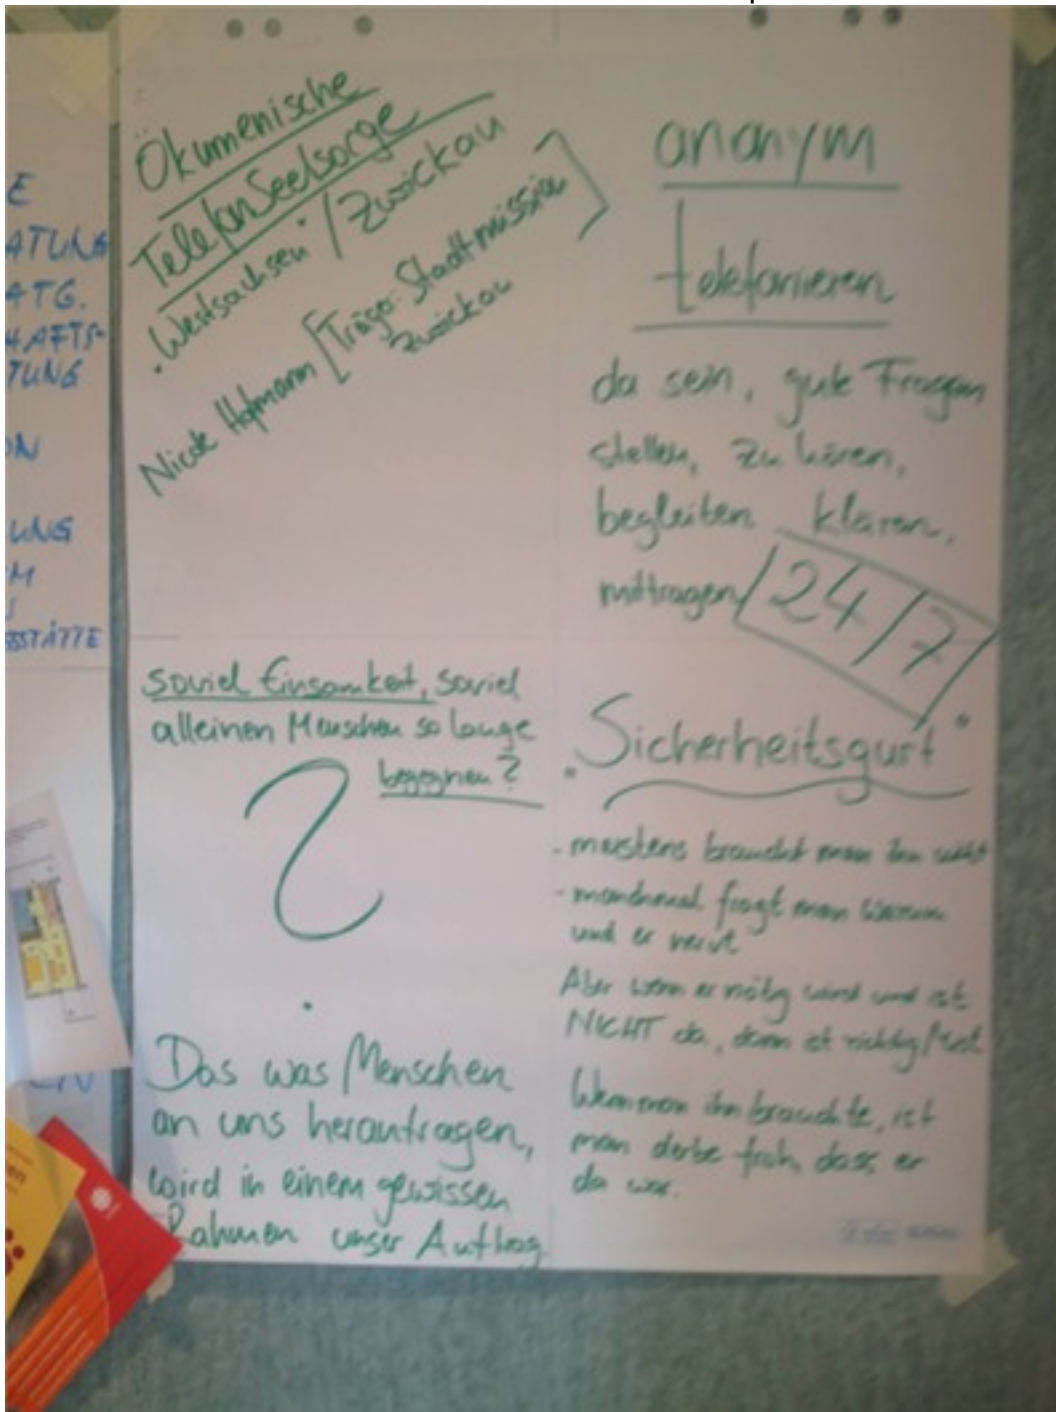 E
ATUNG
ATG.
HAFTS-
TUNG
ON
UNG
M
S
BSTÄTTE
EN
Ökumenische
TelefonSeelsorge
Westsachsen / Zwickau
Nicole Hofmann [Träger: Stadtmission
Zwickau]
anonym
telefonieren
da sein, gute Fragen
stellen, zu hören,
begleiten klären,
mittragen
24/7
soviel Einsamkeit, soviel
alleinen Menschen so lange
begegnen?
?
Das was Menschen
an uns herantragen,
wird in einem gewissen
Rahmen unser Auftrag
"Sicherheitsgurt"
- meistens braucht man ihn nicht
- manchmal fragt man warum
und er nervt
Aber wenn er nötig wird und ist
NICHT da, dann ist richtig Mist
Wenn man ihn brauchte, ist
man derbe froh, dass er
da war.